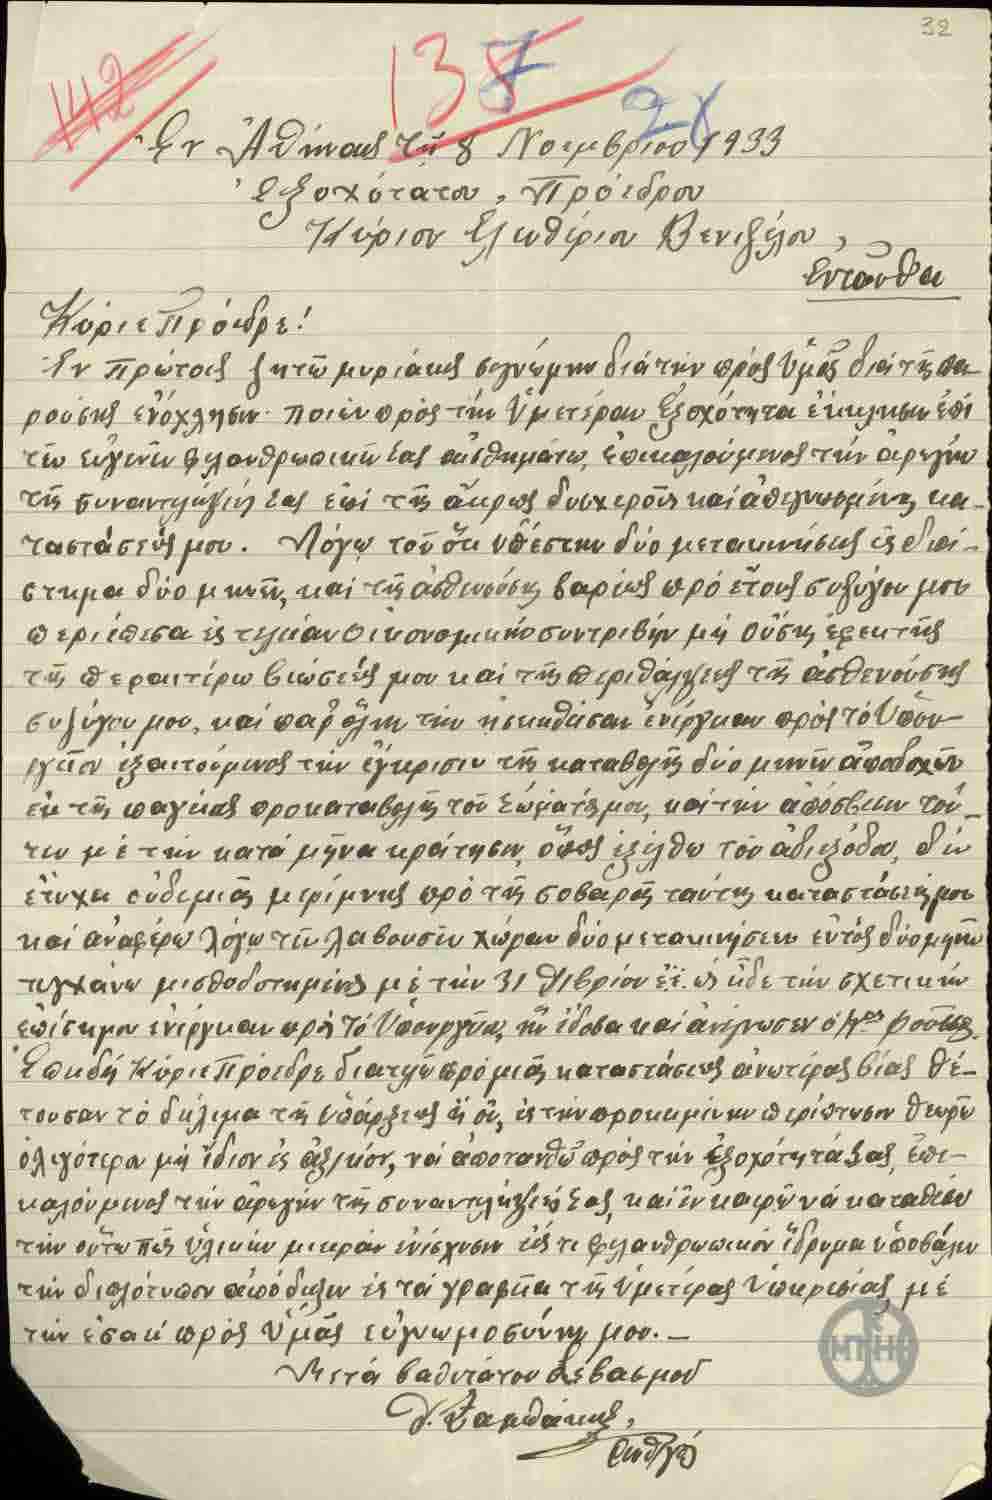 32
142
138
7
28
Ἐν Ἀθήναις τῇ 8 Νοεμβρίου 1933
Ἐξοχώτατον, Πρόεδρον
Κύριον Ἐλευθέριον Βενιζέλον,
Ἐνταῦθα
Κύριε Πρόεδρε!
Ἐν πρώτοις ζητῶ μυριάκις συγνώμην διά τήν πρός Ὑμᾶς διά τῆς πα-
ρούσης ἐνόχλησιν. ποιῶν πρός τήν Ὑμετέραν Ἐξοχότητα ἔκκλησιν ἐπί
τῶν εὐγενῶν φιλανθρωπικῶν Σας αἰσθημάτων, ἐπικαλούμενος τήν ἀρωγήν
τῆς συναντιλήψεώς Σας ἐπί τῆς ἄκρως δυσχεροῦς καί ἀπεγνωσμένης κα-
ταστάσεώς μου. Λόγῳ τοῦ ὅτι ὑπέστην δύο μετακινήσεις εἰς διά-
στημα δύο μηνῶν, καί τῆς ἀσθενούσης βαρέως πρό ἔτους συζύγου μου
περιέπεσα εἰς τελείαν οἰκονομικήν συντριβήν μή οὔσης ἐφικτῆς
τῆς περαιτέρω βιώσεώς μου καί τῆς περιθάλψεως τῆς ἀσθενούσης
συζύγου μου, καί παρ' ὅλην τήν ἐνέργειαν πρός τό Ὑπουρ-
γεῖον ἐξαιτούμενος τήν ἔγκρισιν τῆς καταβολῆς δύο μηνῶν ἀποδοχῶν
ἐκ τῆς παγίας προκαταβολῆς τοῦ Σώματός μου, καί τήν ἀπόσβεσιν τού-
των μέ τήν κατά μῆνα κράτησιν, ὅπως ἐξέλθω τοῦ ἀδιεξόδου, δέν
ἔτυχα οὐδεμιᾶς μερίμνης πρό τῆς σοβαρᾶς ταύτης καταστάσεώς μου
καί ἀναφέρω λόγῳ τῶν λαβουσῶν χώραν δύο μετακινήσεων ἐντός δύο μηνῶν
τυγχάνω μισθοδοτημένος μέ τήν 31 ἔ.ἔ. ὡς εἶδε τήν σχετικήν
ἐπίσημον ἐνέργειαν πρός τό Ὑπουργεῖον, ἥν ἔδοσα καί ἀνέγνωσεν ὁ
Ἐπειδή Κύριε Πρόεδρε διατελῶ πρό μιᾶς καταστάσεως ἀνωτέρας βίας θέ-
τουσαν τό δίλημα τῆς ὑπάρξεως ἤ οὔ, εἰς τήν προκειμένην περίπτωσιν θεωρῶ
ὀλιγότερον μή ἴδιον εἰς ἀξ/κόν, νά ἀποτανθῶ πρός τήν Ἐξοχότητά Σας, ἐπι-
καλούμενος τήν ἀρωγήν τῆς συναντιλήψεώς Σας, καί ἐν καιρῷ νά καταθέσω
τήν οὕτω πως ὑλικήν μικράν ἐνίσχυσιν εἰς τι φιλανθρωπικόν ἵδρυμα ὑποβάλων
τήν διπλότυπον ἀπόδειξιν εἰς τά γραφεῖα τῆς Ὑμετέρας μέ
τήν ἐσαεί πρός Ὑμᾶς εὐγνωμοσύνην μου.—
Μετά βαθυτάτου Σεβασμοῦ
ΜΠΗ